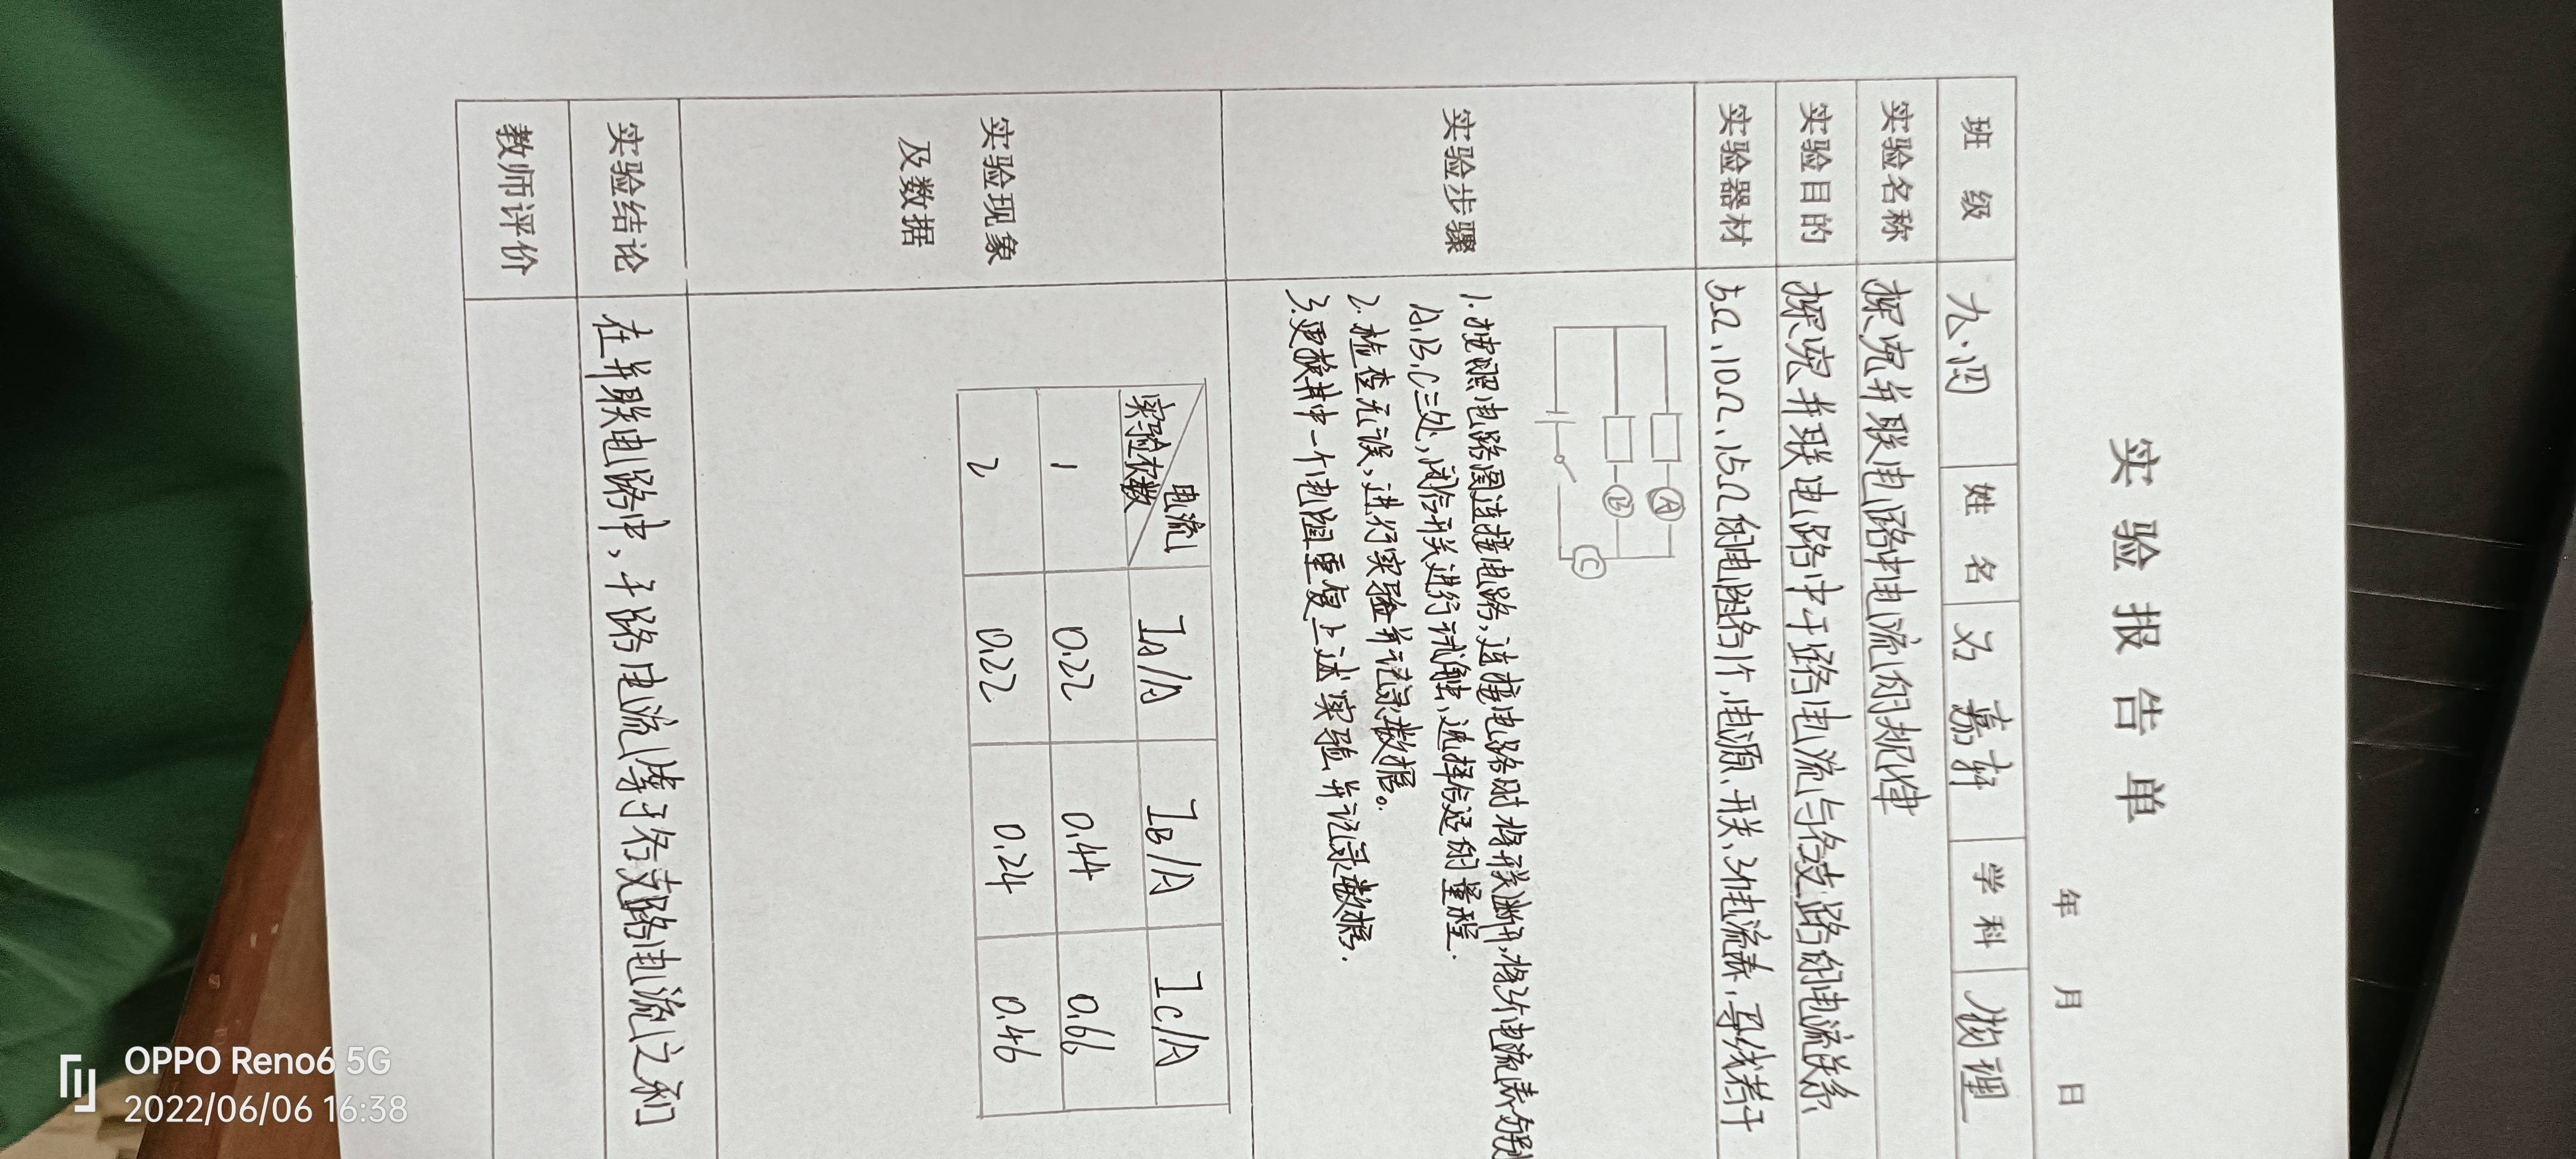 实验报告单
年 月 日
班 级 九.四 姓 名 嘉轩 学 科 物理
实验名称 探究并联电路中电流的规律
实验目的 探究并联电路中干路电流与各支路的电流关系
实验器材 5Ω、10Ω、15Ω的电阻各1个,电源、开关、3个电流表,导线若干
实验步骤
A
B
C
1.按照电路图连接电路,连接电路时将开关断开,将3个电流表分别
A.B.C三处,闭合开关进行试触,选择合适的量程.
2.检查无误,进行实验并记录数据。
3.更换其中一个电阻重复上述实验并记录数据.
实验现象
及数据
电流
实验次数 IA/A IB/A IC/A
1 0.22 0.44 0.66
2 0.22 0.24 0.46
实验结论 在并联电路中,干路电流等于各支路电流之和
教师评价
OPPO Reno6 5G
2022/06/06 16:38